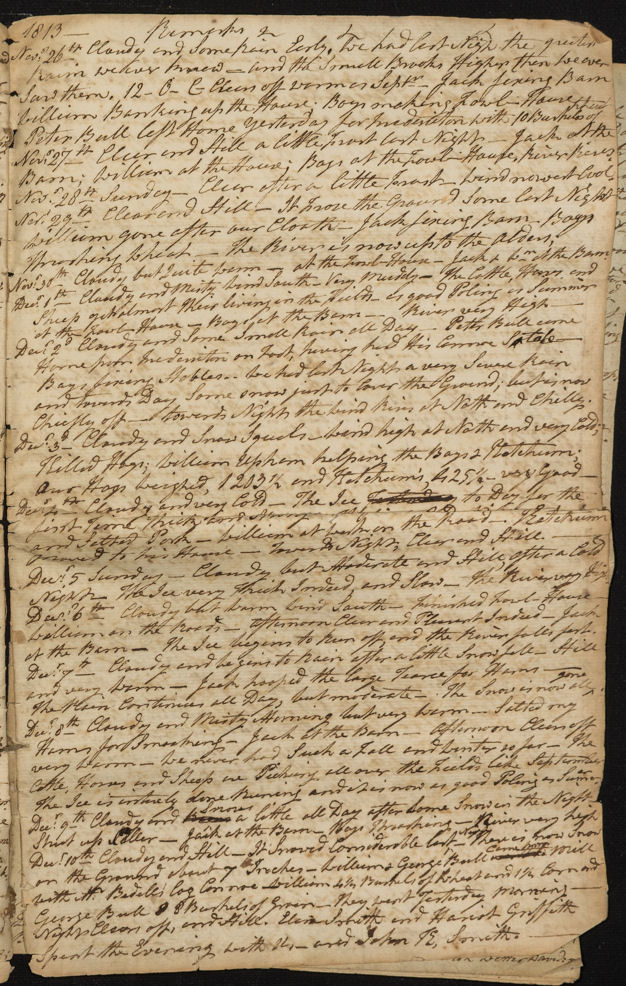 1813 — Remarks &
Novr. 26th Cloudy and Some Rain Early. We had last Night the greatest
Rain we Ever knew — and the Small Brooks Higher than we ever
Saw them. 12 - 0 - Clears off warm as Septr — Jack fixing Barn
William Banking up the House; Boys making fowl-House,
Peter Bull left Home yesterday for Fredericton with 10 Bushels of
Novr. 27th Clear and Still a little frost last Night — Jack at the
Barn; William at the House; Boys at the Fowl-House, River Rises.
Novr. 28th Sunday — Clear after a little Frost — Wind norwest Cool
Novr. 29th Clear and Still — It froze the Ground Some last Night
William gone after our Cloath — Jack fixing Barn — Boys
Thrashing Wheat — The River is now up to the alders;
Novr. 30th Cloudy but Quite warm — at the Fowl-House — Jack & Wm at the Barn
Decr. 1th — Cloudy and Misty, wind South — Very Muddy — The Cattle, Horses and
Sheep get almost their living in the fields — as good Poling as Summer
at the fowl-House — Boys at the Barn — River very High —
Decr. 2d Cloudy and Some Small Rain all Day — Peter Bull came
Home from Fredericton on foot, having had His Connoe Stole —
Boys fixing Stables — we had last Night a very Severe Rain
and towards Day Some snow just to Cover the Ground; but is now
Chiefly off — towards Night the wind Rises at North and Chilly.
Decr. 3d Cloudy and Snow Squals — wind high at North and very Cold;
Killed Hogs; William Upham helping the Boys & Ketchum;
our Hogs weighed, 1203½ and Ketchums, 425½ — very Good —
Decr. 4th — Cloudy and very Cold — The Ice to Day for the
first Time thick and
and Salted Pork — William at work on the Road — Ketchum
moved to his House — Towards Night, Clear and Still. —
Decr. 5 Sunday — Cloudy but Moderate and Still, after a Cold
Night — The Ice very thick Indeed, and Slow — The River very High.
Decr. 6th Cloudy but warm, wind South — finished Fowl-House
William on the Road — Afternoon Clear and Pleasent Indeed — Jack
at the Barn — The Ice begins to Run off and the River falls fast.
Decr. 7th — Cloudy and begins to Rain after a little Snow fall — Still
and very warm — Jack hooped the large Tearce for Hams —
The Rain Continues all Day, but moderate — The Snow is now all gone
Decr. 8th Cloudy and Misty Morning but very warm — Salted my
Hams for Smoaking — Jack at the Barn — afternoon Clears off
very warm — we never had Such a Fall and Winter so far — The
Cattle, Horses and Sheep are Picking all over the Fields like September
The Ice is intirely done Running and it is now as good Poling as Summer
Decr. 9th Cloudy and Snows a little all Day after some Snow in the Night
Shut up Celler — Jack at the Barn — Boys Thrashing — River very high
Decr. 10th Cloudy and Still — It Snowed Considerable last Night There is now Snow
on the Ground about 7 Inches — William & George Bull gone to Mill
with Mr. Bedells Log Connoe William 4½ Bushels of Wheat and 1½ Corn and
George Bull 8 Bushels of Grain — They went Yesterday Morning —
Night Clears off, and Still. Eliza Smith and Harriot Griffith
Spent the Evening with Us — and John R. Smith.